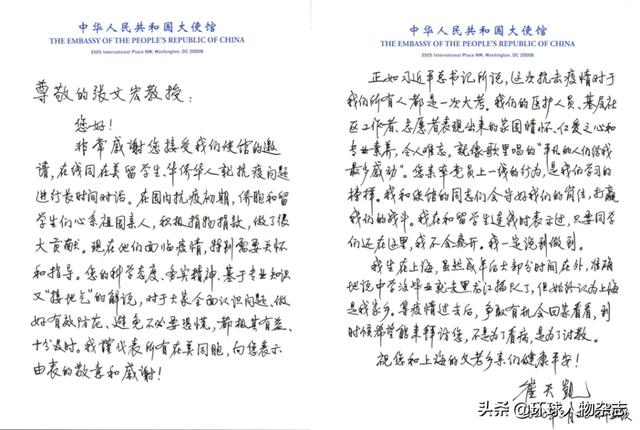 中华人民共和国大使馆
THE EMBASSY OF THE PEOPLE'S REPUBLIC OF CHINA
3505 International Place NW, Washington, DC 20008
尊敬的张文宏教授：
您好！
非常感谢您接受我们使馆的邀
请，在线同在美留学生、华侨华人就抗疫问题
进行长时间对话。在国内抗疫初期，侨胞和留
学生们心系祖国亲人，积极捐物捐款，做了很
大贡献。现在他们面临疫情，特别需要关怀
和指导。您的科学态度、务实精神、基于专业知识
又“接地气”的解说，对于大家全面认识问题、做
好有效防范、避免不必要恐慌，都极其有益、
十分及时。我谨代表所有在美同胞，向您表示
由衷的敬意和感谢！
中华人民共和国大使馆
THE EMBASSY OF THE PEOPLE'S REPUBLIC OF CHINA
3505 International Place NW, Washington, DC 20008
正如习近平总书记所说，这次抗击疫情对于
我们所有人都是一次大考。我们的医护人员、基层社
区工作者、志愿者表现出来的家国情怀、仁爱之心和
专业素养，令人难忘。就像歌里唱的“平凡的人们给我
最多感动”。您亲率党员上一线的行为，是我们学习的
榜样。我和使馆的同志们会守好我们的岗位，打赢
我们的战斗。我在和留学生连线时表示过，只要同学
们还在这里，我不会离开。我一定说到做到。
我生在上海，虽然成年后大部分时间在外，准确
地说中学没毕业就去黑龙江插队了，但始终认为上海
是我家乡。等疫情过去后，争取有机会回家看看，到
时候希望能来拜访您，不是为了看病，是为了讨教。
祝您和上海的父老乡亲们健康平安！
崔天凯
头条 @环球人物杂志